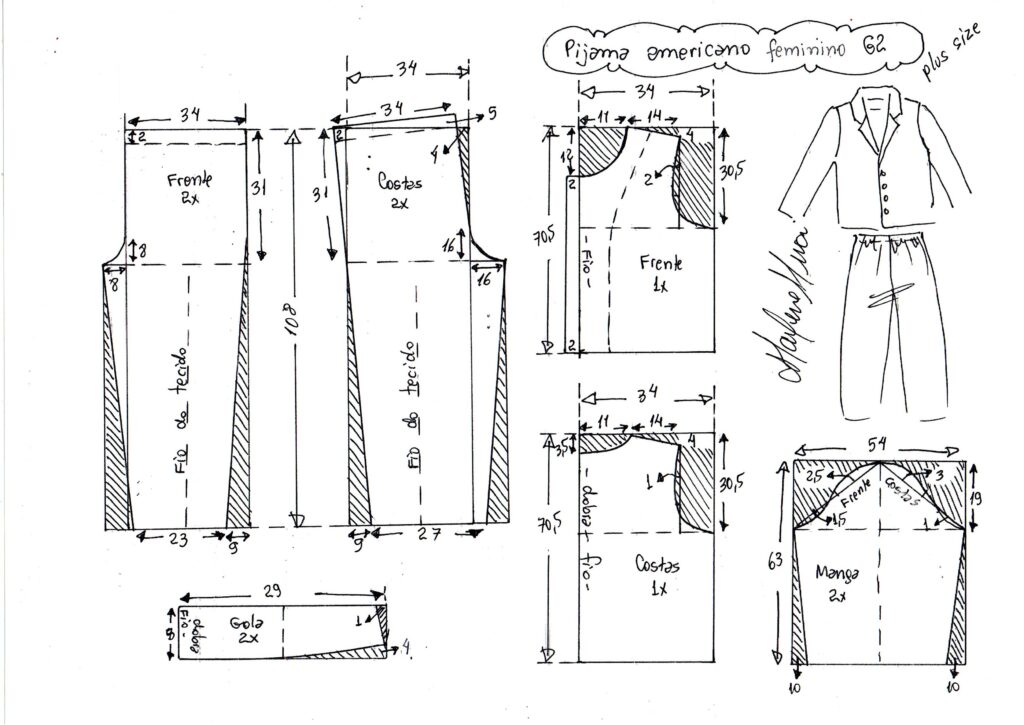 Pijama americano feminino G2
plus size
34
2
Frente
2x
31
8
8
Fio do tecido
23
9
108
34
34
5
2
4
31
Costas
2x
16
16
Fio do tecido
9
27
34
11
14
4
12
2
2
30,5
70,5
- Fio -
Frente
1x
2
34
11
14
4
3,5
1
30,5
70,5
- dobra + fio -
Costas
1x
54
2,5
3
Frente
Costas
19
1,5
1
63
Manga
2x
10
10
29
8
Fio -
dobra
Gola
2x
1
4